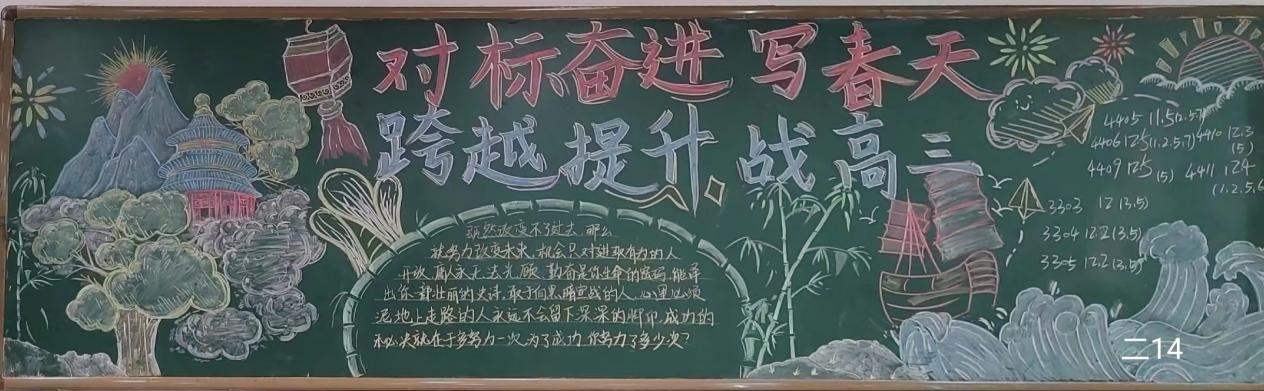 对标奋进 写春天
跨越提升 战高三
既然改变不了过去,那么
就努力改变未来,机会只对进取有为的人
开放,庸人永无法光顾,勤奋是你生命的密码,能译
出你一部壮丽的史诗,敢于向黑暗宣战的人,心里必须
泥地上走路的人永远不会留下深深的脚印,成功的
秘诀就在于多努力一次,为了成功,你努力了多少次?
4405 11.5(2.5.7)
4406 12.5(1.2.5.7) 4410 12.3
(5)
4409 12.5 (5) 4411 12.4
(1.2.5.6
3303 12(3.5)
3304 12.2(3.5)
3305 12.2(3.5)
二14